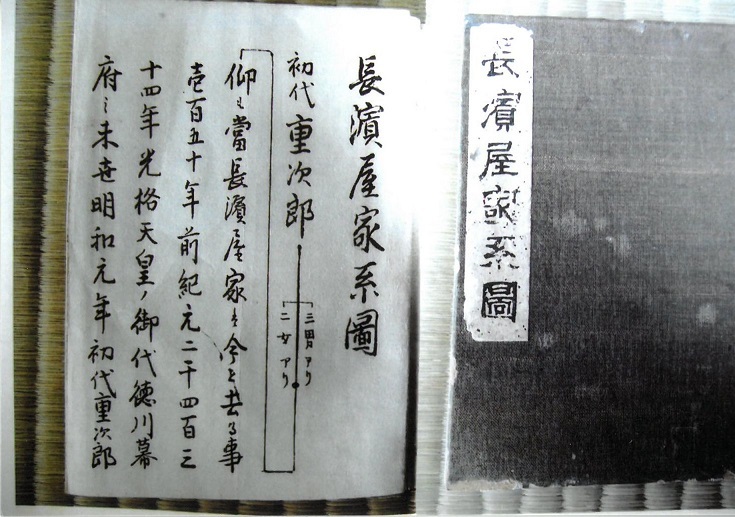 長濱屋家系圖
長濱屋家系圖
初代 重次郎
三男アリ
二女アリ
仰も當長濱屋家は今を去る事
壱百五十年前紀元二千四百三
十四年光格天皇ノ御代徳川幕
府之末世明和元年初代重次郎